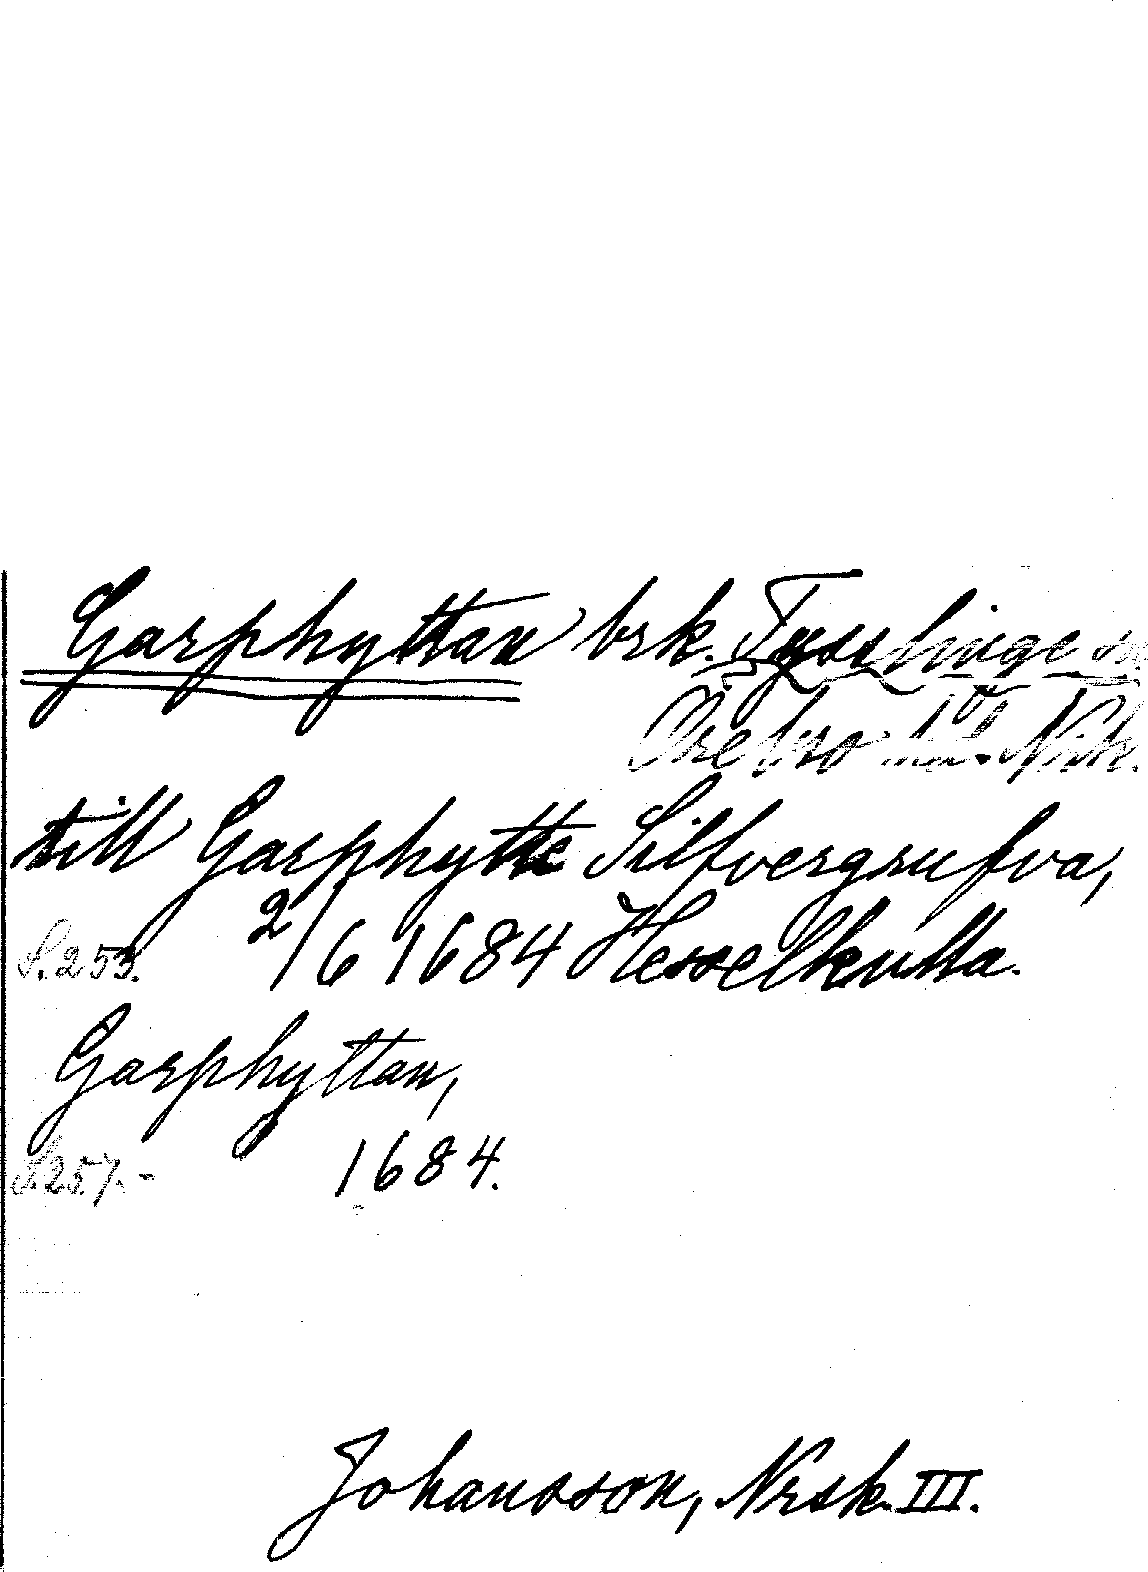 Garphyttan brk. Tysslinge sn
Örebro hd. Nrk.
till Garphytte Silfvergrufva,
S. 253. 2/6 1684 Hesselkulla.
Garphyttan,
S. 257. - 1684.
Johansson, Nrsk. III.